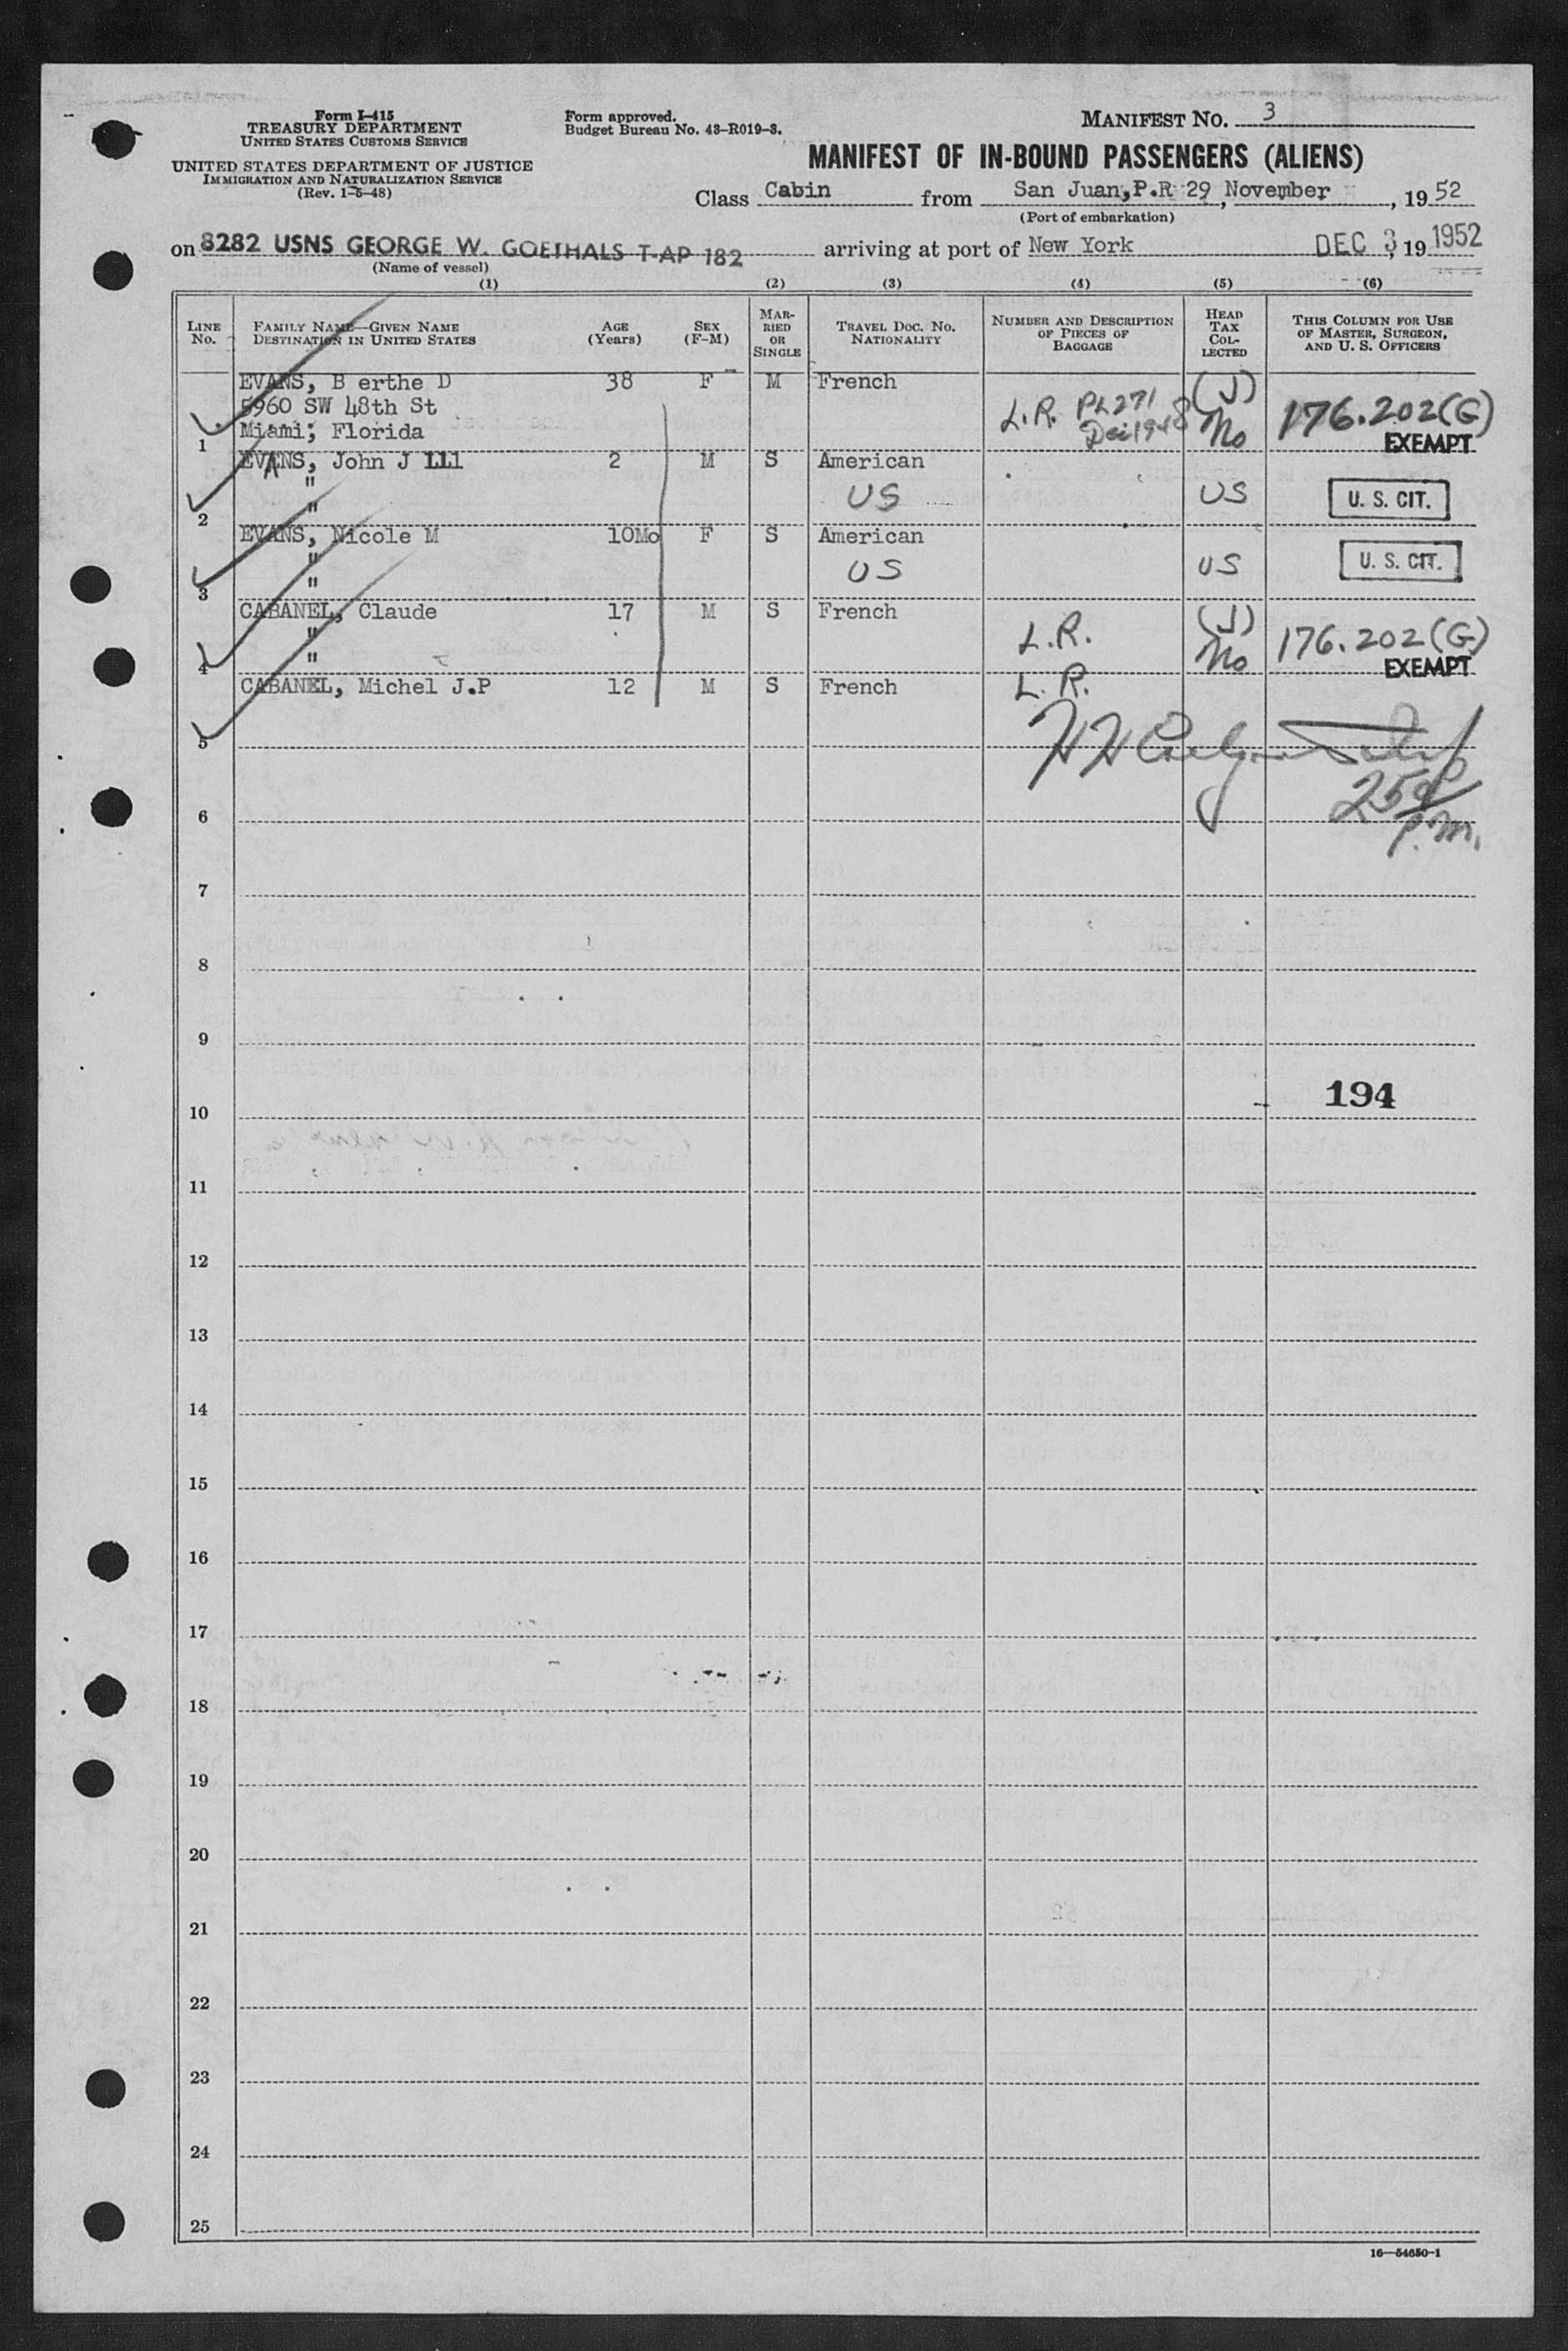 Form I-415
TREASURY DEPARTMENT
UNITED STATES CUSTOMS SERVICE
UNITED STATES DEPARTMENT OF JUSTICE
IMMIGRATION AND NATURALIZATION SERVICE
(Rev. 1-5-48)
Form approved.
Budget Bureau No. 43-R019-3.
MANIFEST NO. 3
MANIFEST OF IN-BOUND PASSENGERS (ALIENS)
Class Cabin from San Juan,P.R 29 November, 1952
(Port of embarkation)
on 8282 USNS GEORGE W. GOETHALS T-AP 182 arriving at port of New York DEC 3, 19 1952
(Name of vessel)
(1) (2) (3) (4) (5) (6)
LINE No.
FAMILY NAME—GIVEN NAME
DESTINATION IN UNITED STATES
AGE (Years)
SEX (F-M)
MAR-RIED OR SINGLE
TRAVEL DOC. NO. NATIONALITY
NUMBER AND DESCRIPTION OF PIECES OF BAGGAGE
HEAD TAX COL-LECTED
THIS COLUMN FOR USE OF MASTER, SURGEON, AND U. S. OFFICERS
EVANS, B erthe D 38 F M French
5960 SW 48th St L.R. PL271 (J) 176.202(G)
1 Miami; Florida Dec 1948 No EXEMPT
EVANS, John J LLl 2 M S American
" US US U. S. CIT.
2 "
EVANS, Nicole M 10Mo F S American
" US US U. S. CIT.
3 "
CABANEL, Claude 17 M S French
" L.R. (J) 176.202(G)
4 " No EXEMPT
CABANEL, Michel J.P 12 M S French L.R.
5
250 P.M.
6
7
8
9
194
10
11
12
13
14
15
16
17
18
19
20
21
22
23
24
25
16—54650-1